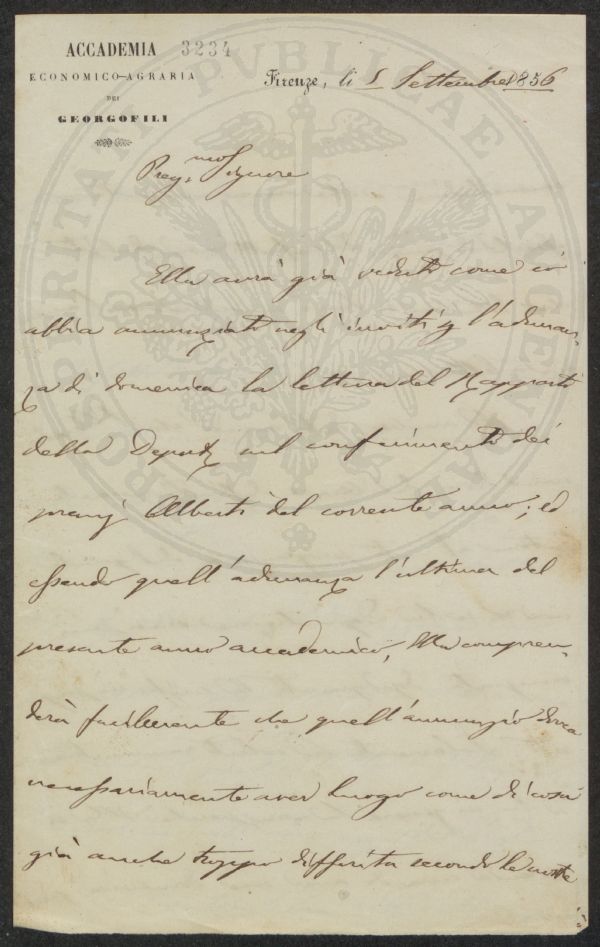 ACCADEMIA 3234
ECONOMICO-AGRARIA
DEI
GEORGOFILI
Firenze, li 5 Settembre 1856
Preg.mo Signore
Ella avrà già veduto come io
abbia annunziato negli inviti p l'adunan-
za di domenica la lettura del Rapporto
della Deputaz sul conferimento dei
premj Alberti del corrente anno; ed
essendo quell'adunanza l'ultima del
presente anno accademico, Ella compren-
derà facilmente che quell'annunzio dovea
necessariamente aver luogo come di cosa
già anche troppo differita secondo le nostre
PROSPERITATI PVBLICAE AVGENDAE